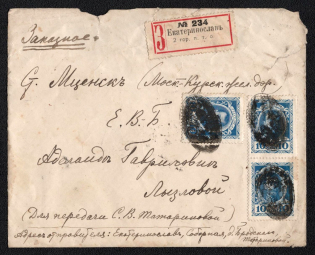 Заказное.
З
№ 234
Екатеринославъ
2 гор. п. т. о.
Г. Мценскъ (Моск-Курск. жел. дор.)
Е. В-Б.
Аделаидѣ Гавриловнѣ
Лызловой
10 10
10 10
(Для передачи С. В. Татариновой)
Адресъ отправителя: Екатеринославъ, Соборная, д.